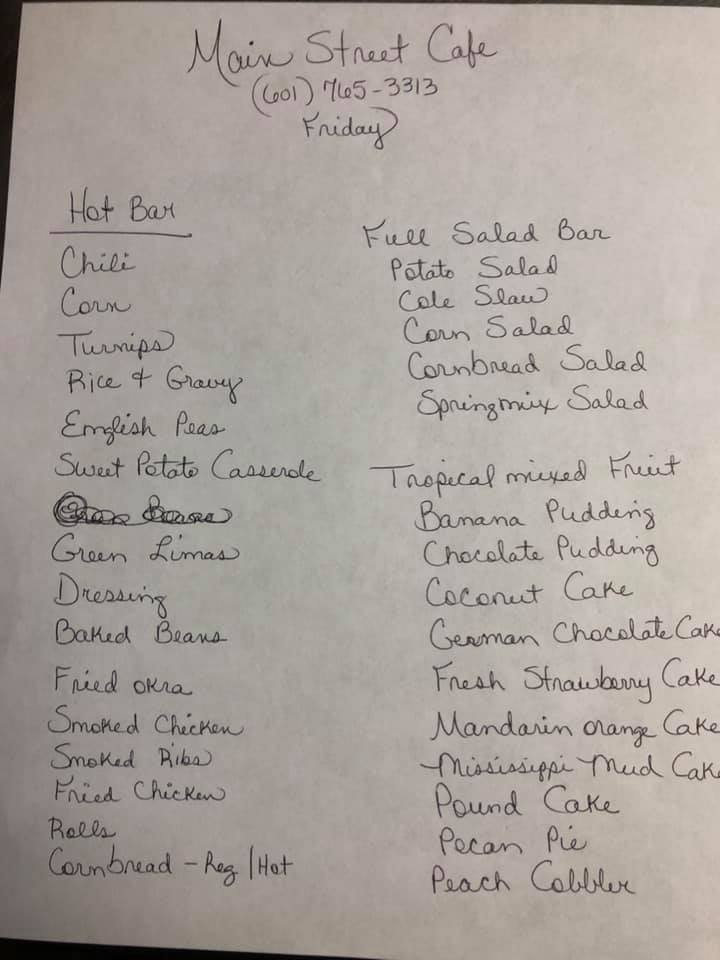 Main Street Cafe
(601) 765-3313
Friday
Hot Bar
Chili
Corn
Turnips
Rice & Gravy
English Peas
Sweet Potato Casserole
Green Limas
Dressing
Baked Beans
Fried okra
Smoked Chicken
Smoked Ribs
Fried Chicken
Rolls
Cornbread - Reg | Hot
Full Salad Bar
Potato Salad
Cole Slaw
Corn Salad
Cornbread Salad
Springmix Salad
Tropical mixed Fruit
Banana Pudding
Chocolate Pudding
Coconut Cake
German Chocolate Cake
Fresh Strawberry Cake
Mandarin orange Cake
Mississippi Mud Cake
Pound Cake
Pecan Pie
Peach Cobbler